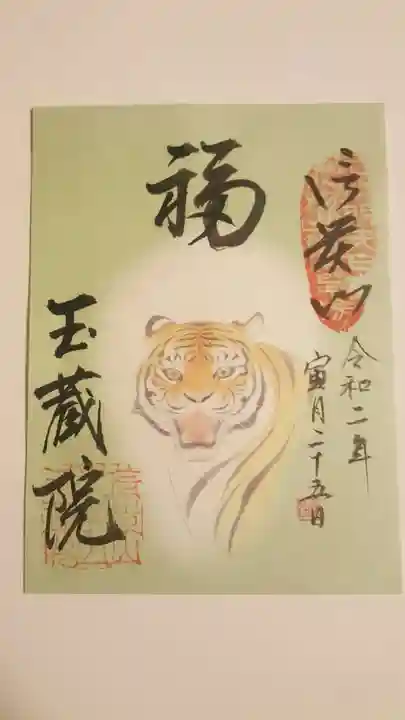 信貴山
令和二年
寅月二十五日
福
玉蔵院